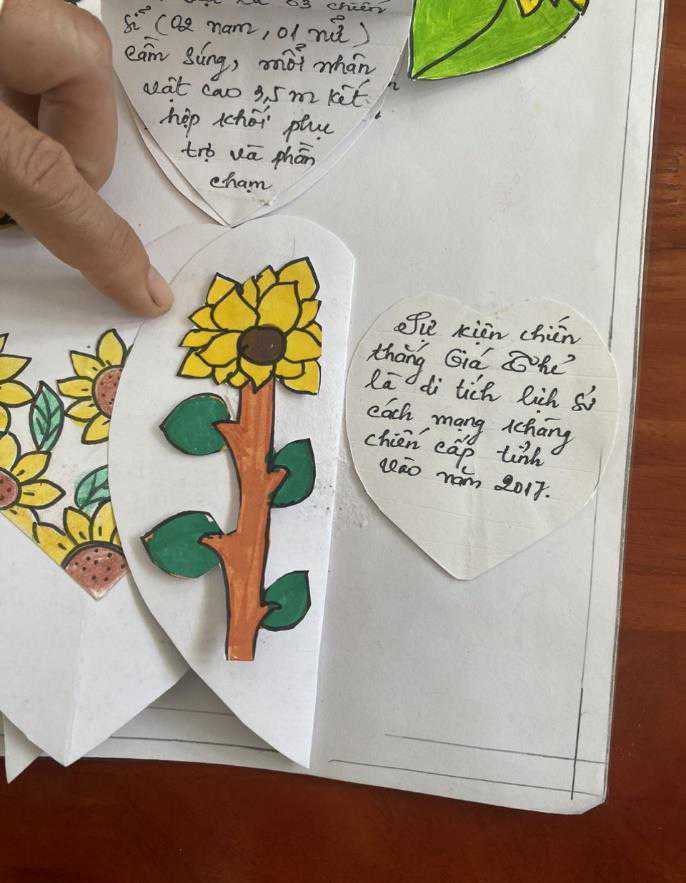 là 03 chiến
sĩ (02 nam, 01 nữ)
cầm súng, mỗi nhân
vật cao 3,5 m kết
hợp khối phụ
trợ và phần
chạm
Sự kiện chiến
thắng Giá Thẻ
là di tích lịch sử
cách mạng kháng
chiến cấp tỉnh
vào năm 2017.